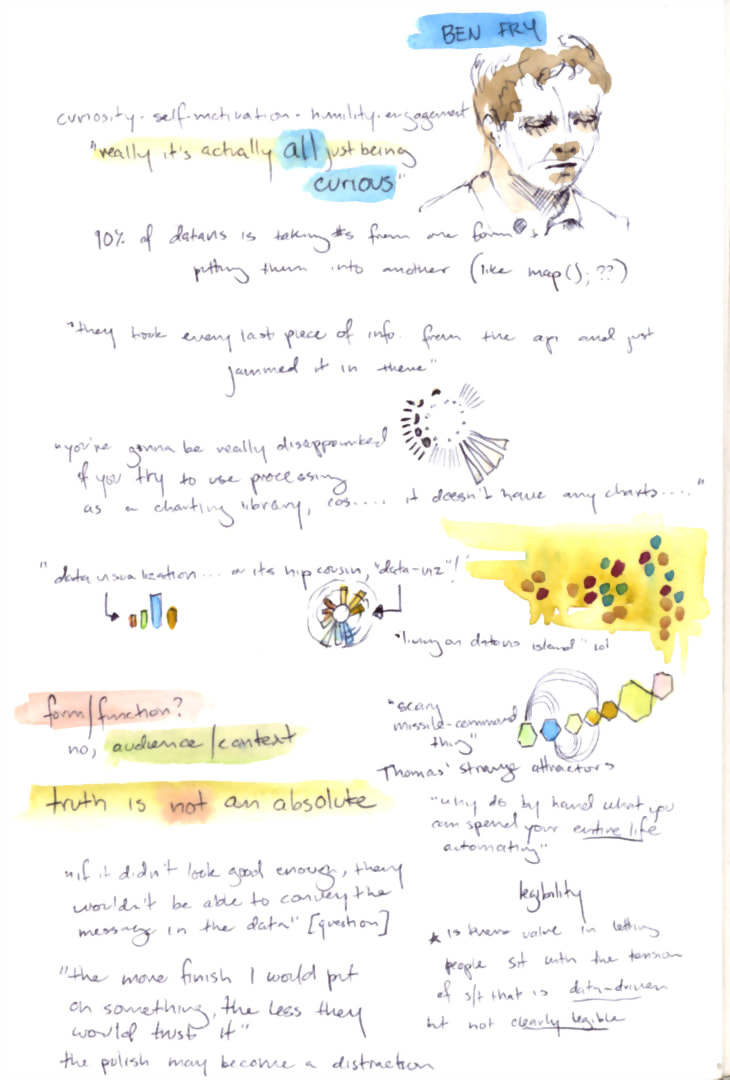 BEN FRY
curiosity - self-motivation - humility - engagement
"really it's actually all just being
curious"
90% of datavis is taking #s from one form &
putting them into another (like map(); ??)
"they took every last piece of info. from the api and just
jammed it in there"
"you're gonna be really disappointed
if you try to use processing
as a charting library, cos.... it doesn't have any charts...."
"data visualization... or its hip cousin, "data-viz"!"
"living on datavis island" lol
form/function?
no, audience/context
truth is not an absolute
"scary
missile-command
thing"
Thomas' strange attractors
"why do by hand what you
can spend your entire life
automating"
"if it didn't look good enough, they
wouldn't be able to convey the
message in the data" [question]
"the more finish I would put
on something, the less they
would trust it"
the polish may become a distraction
legibility
* is there value in letting
people sit with the tension
of s/t that is data-driven
but not clearly legible